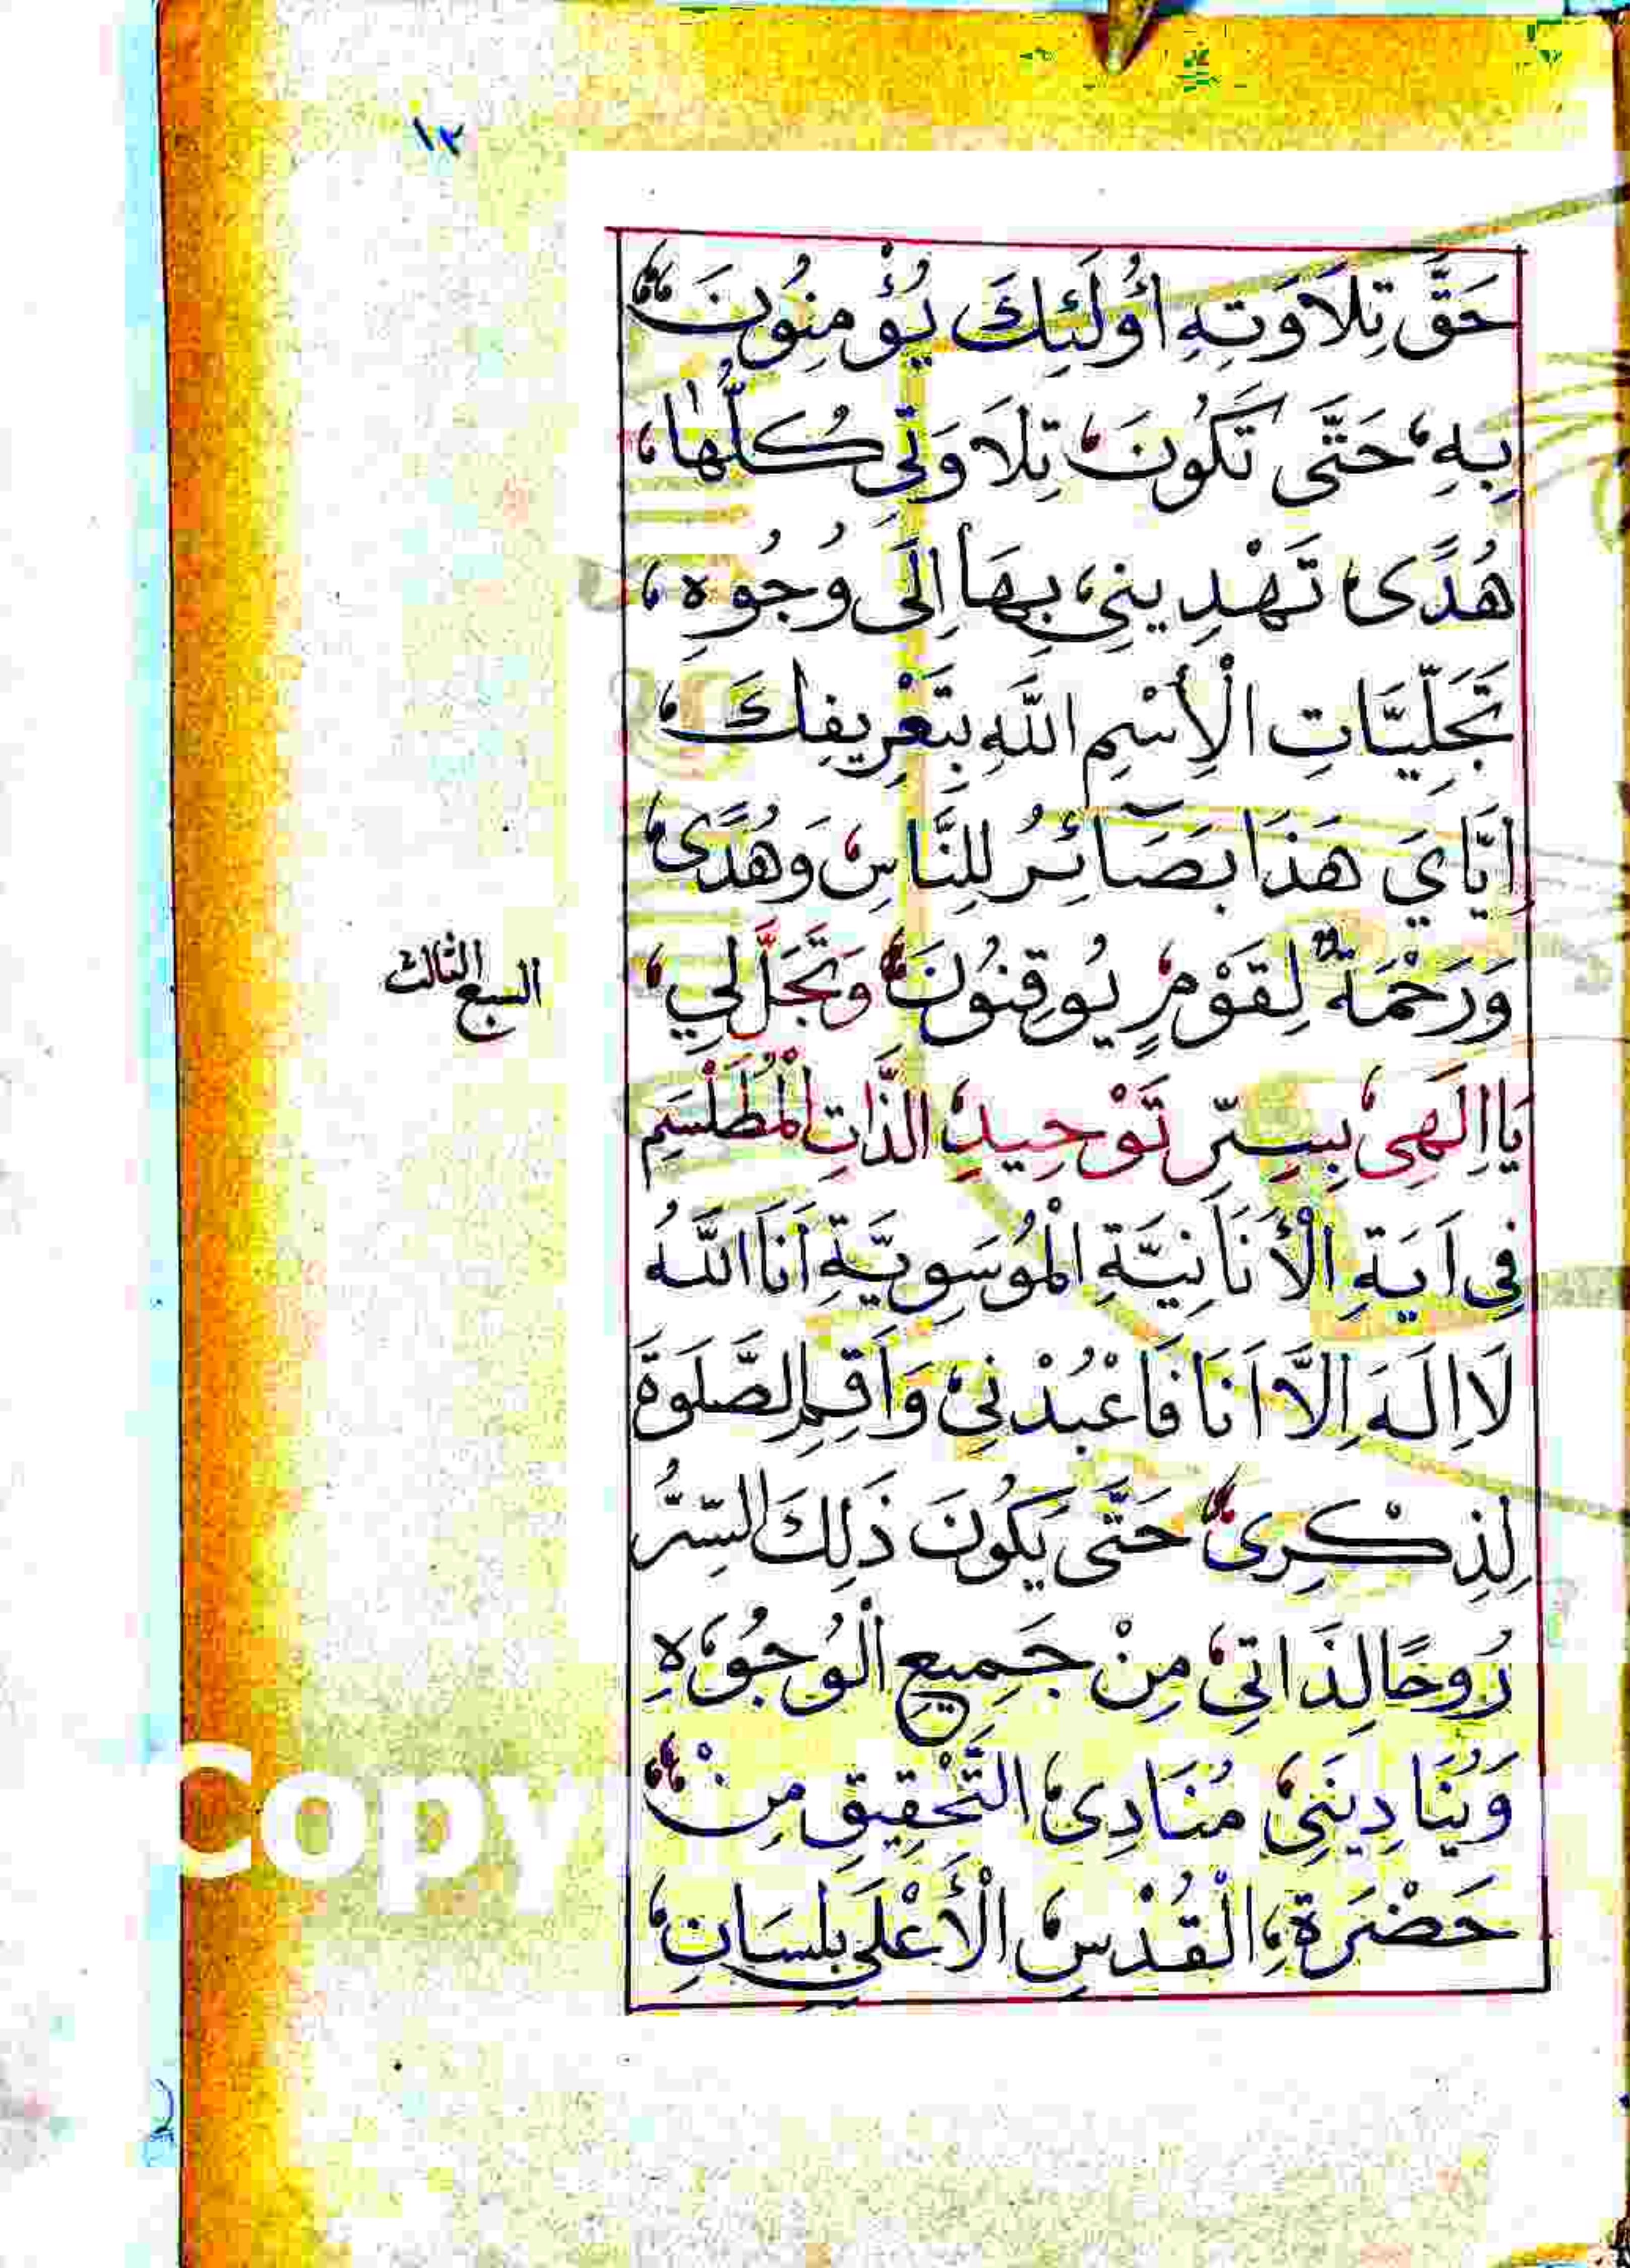 ١٢
حَقَّ تِلَاوَتِهِ أُولَئِكَ يُؤْمِنُونَ
بِهِ حَتَّى تَكُونَ تِلَاوَتِي كُلُّهَا
هُدًى تَهْدِينِي بِهَا إِلَى وُجُوهِ
تَجَلِّيَاتِ الْإِسْمِ اللَّهِ بِتَعْرِيفِكَ
اِيَّايَ هَذَا بَصَآئِرُ لِلنَّاسِ وَهُدًى
وَرَحْمَةٌ لِقَوْمٍ يُوقِنُونَ وَتَجَلَّ لِي
السبع الثالث
يَا اِلَهِى بِسِرِّ تَوْحِيدِ الذَّاتِ الْمُطَلْسَمِ
فِى اَيَةِ الْأَنَانِيَّةِ الْمُوسَوِيَّةِ اَنَا اللَّهُ
لَا اِلَهَ اِلَّا اَنَا فَاعْبُدْنِى وَاَقِمِ الصَّلَوةَ
لِذِكْرِى حَتَّى يَكُونَ ذَلِكَ السِّرُّ
رُوحًا لِذَاتِي مِنْ جَمِيعِ الْوُجُوهِ
وَيُنَادِينَنِى مُنَادِى التَّحْقِيقِ مِنْ
حَضْرَةِ الْقُدْسِ الْأَعْلَى بِلِسَانِ
Copy